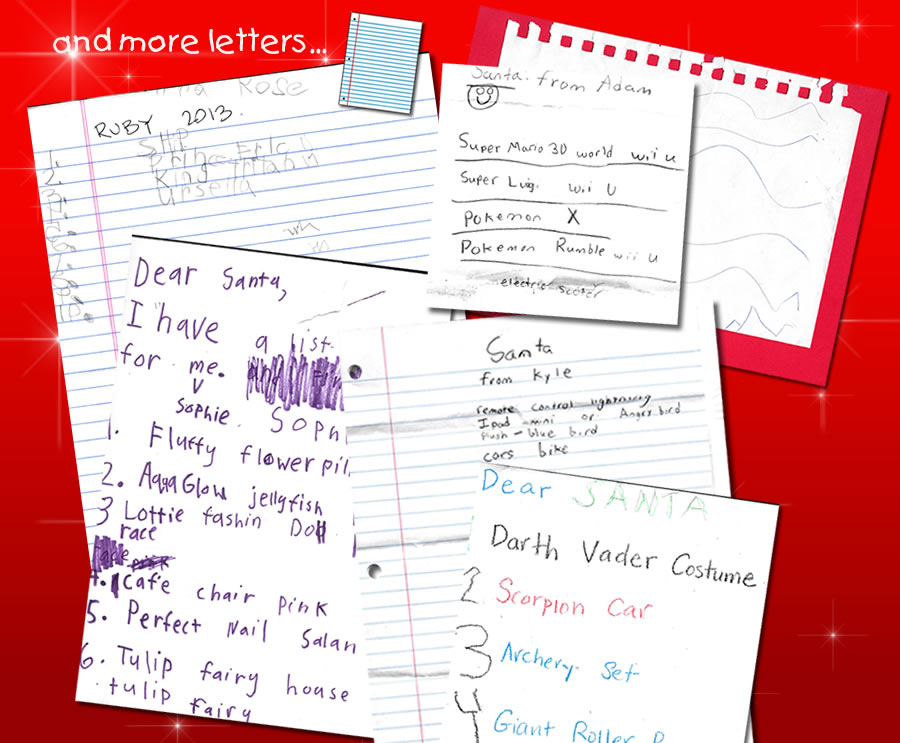 and more letters...
Rose
RUBY 2013.
SHIP
Prince Eric
King Triton
Ursella
Santa. from Adam
Super Mario 3D world wii u
Super Luigi wii U
Pokemon X
Pokemon Rumble wii u
electric scoter
Dear Santa,
I have a list
for me.
Sophie SOPH
1. Fluffy flower pil
2. AquaGlow jellyfish
3 Lottie fashin Doll
race
4. Cafe chair pink
5. Perfect Nail Salan
6. Tulip fairy house
tulip fairy
Santa
from Kyle
remote control lightening
Ipad mini or Angry bird
Plush - blue bird
cars bike
Dear SANTA
Darth Vader Costume
2 Scorpion Car
3 Archery Set
4 Giant Roller